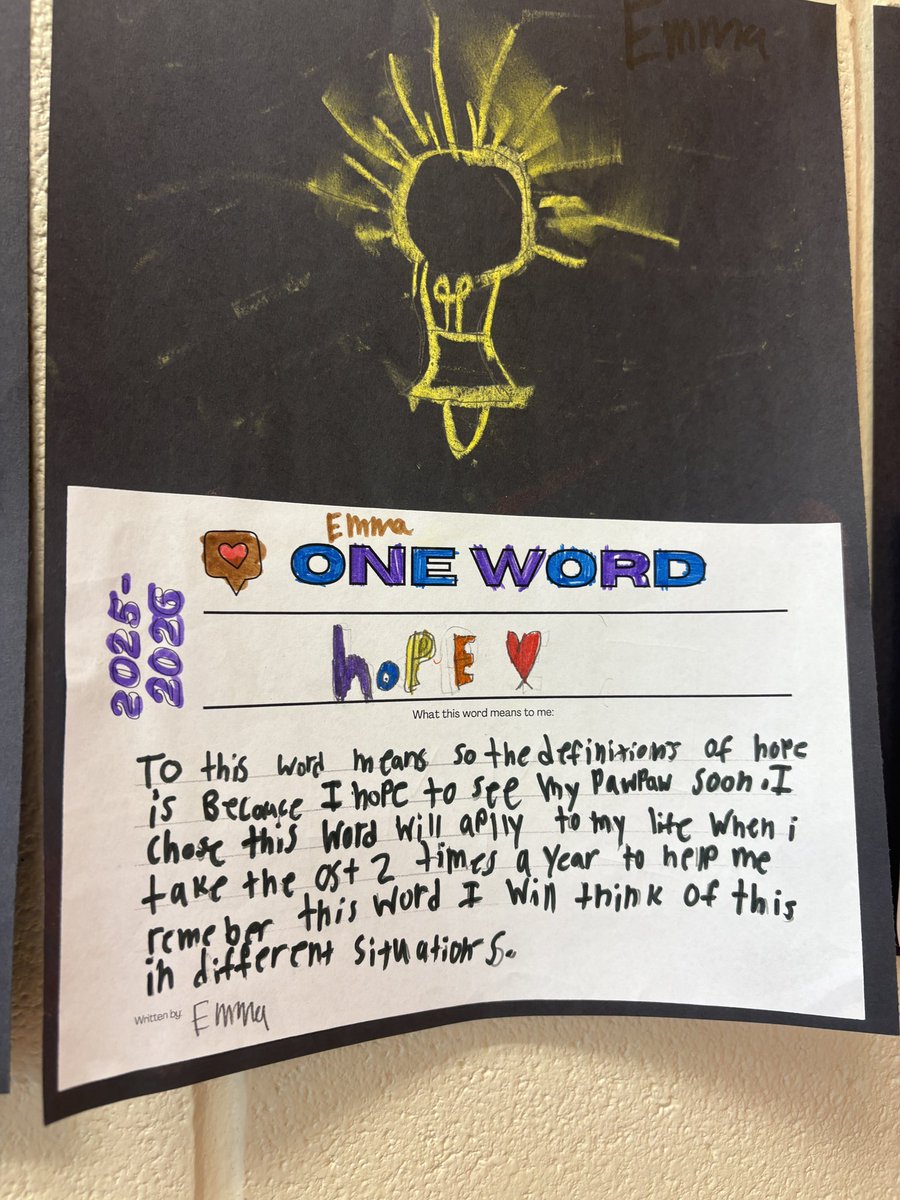 Emma
Emma
ONE WORD
2025-
2026
hoPE
What this word means to me:
To this word means so the definitions of hope
is Becauce I hope to see my PawPaw soon. I
chose this word will aplly to my life when i
take the ost 2 times a year to help me
remeber this word I will think of this
in different situations.
Written by: Emma